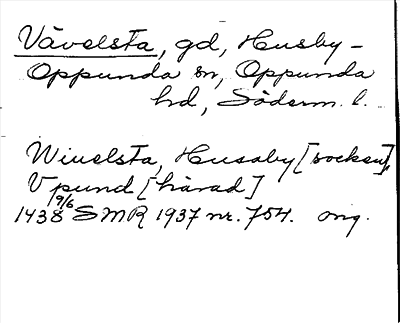 Vävelsta, gd, Husby-
Oppunda sn, Oppunda
hd, Söderm. l.
Winelsta, Husaby [socken],
Vpund [härad]
1438 9/6 SMR 1937 nr. 754. orig.